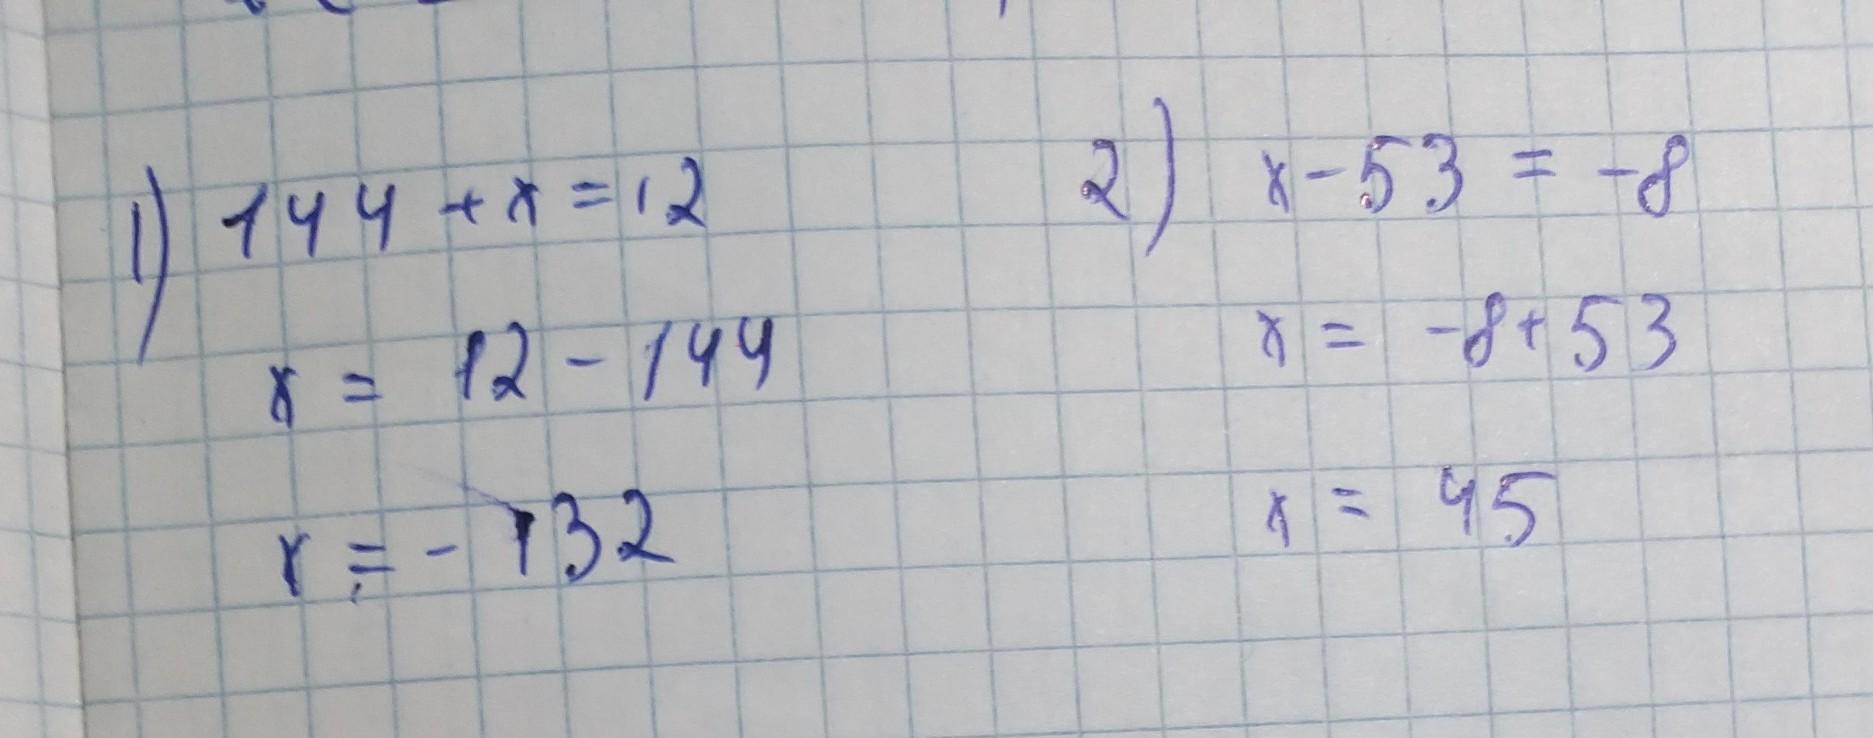 1) 144 + x = 12
x = 12 - 144
x = - 132
2) x - 53 = -8
x = -8 + 53
x = 45